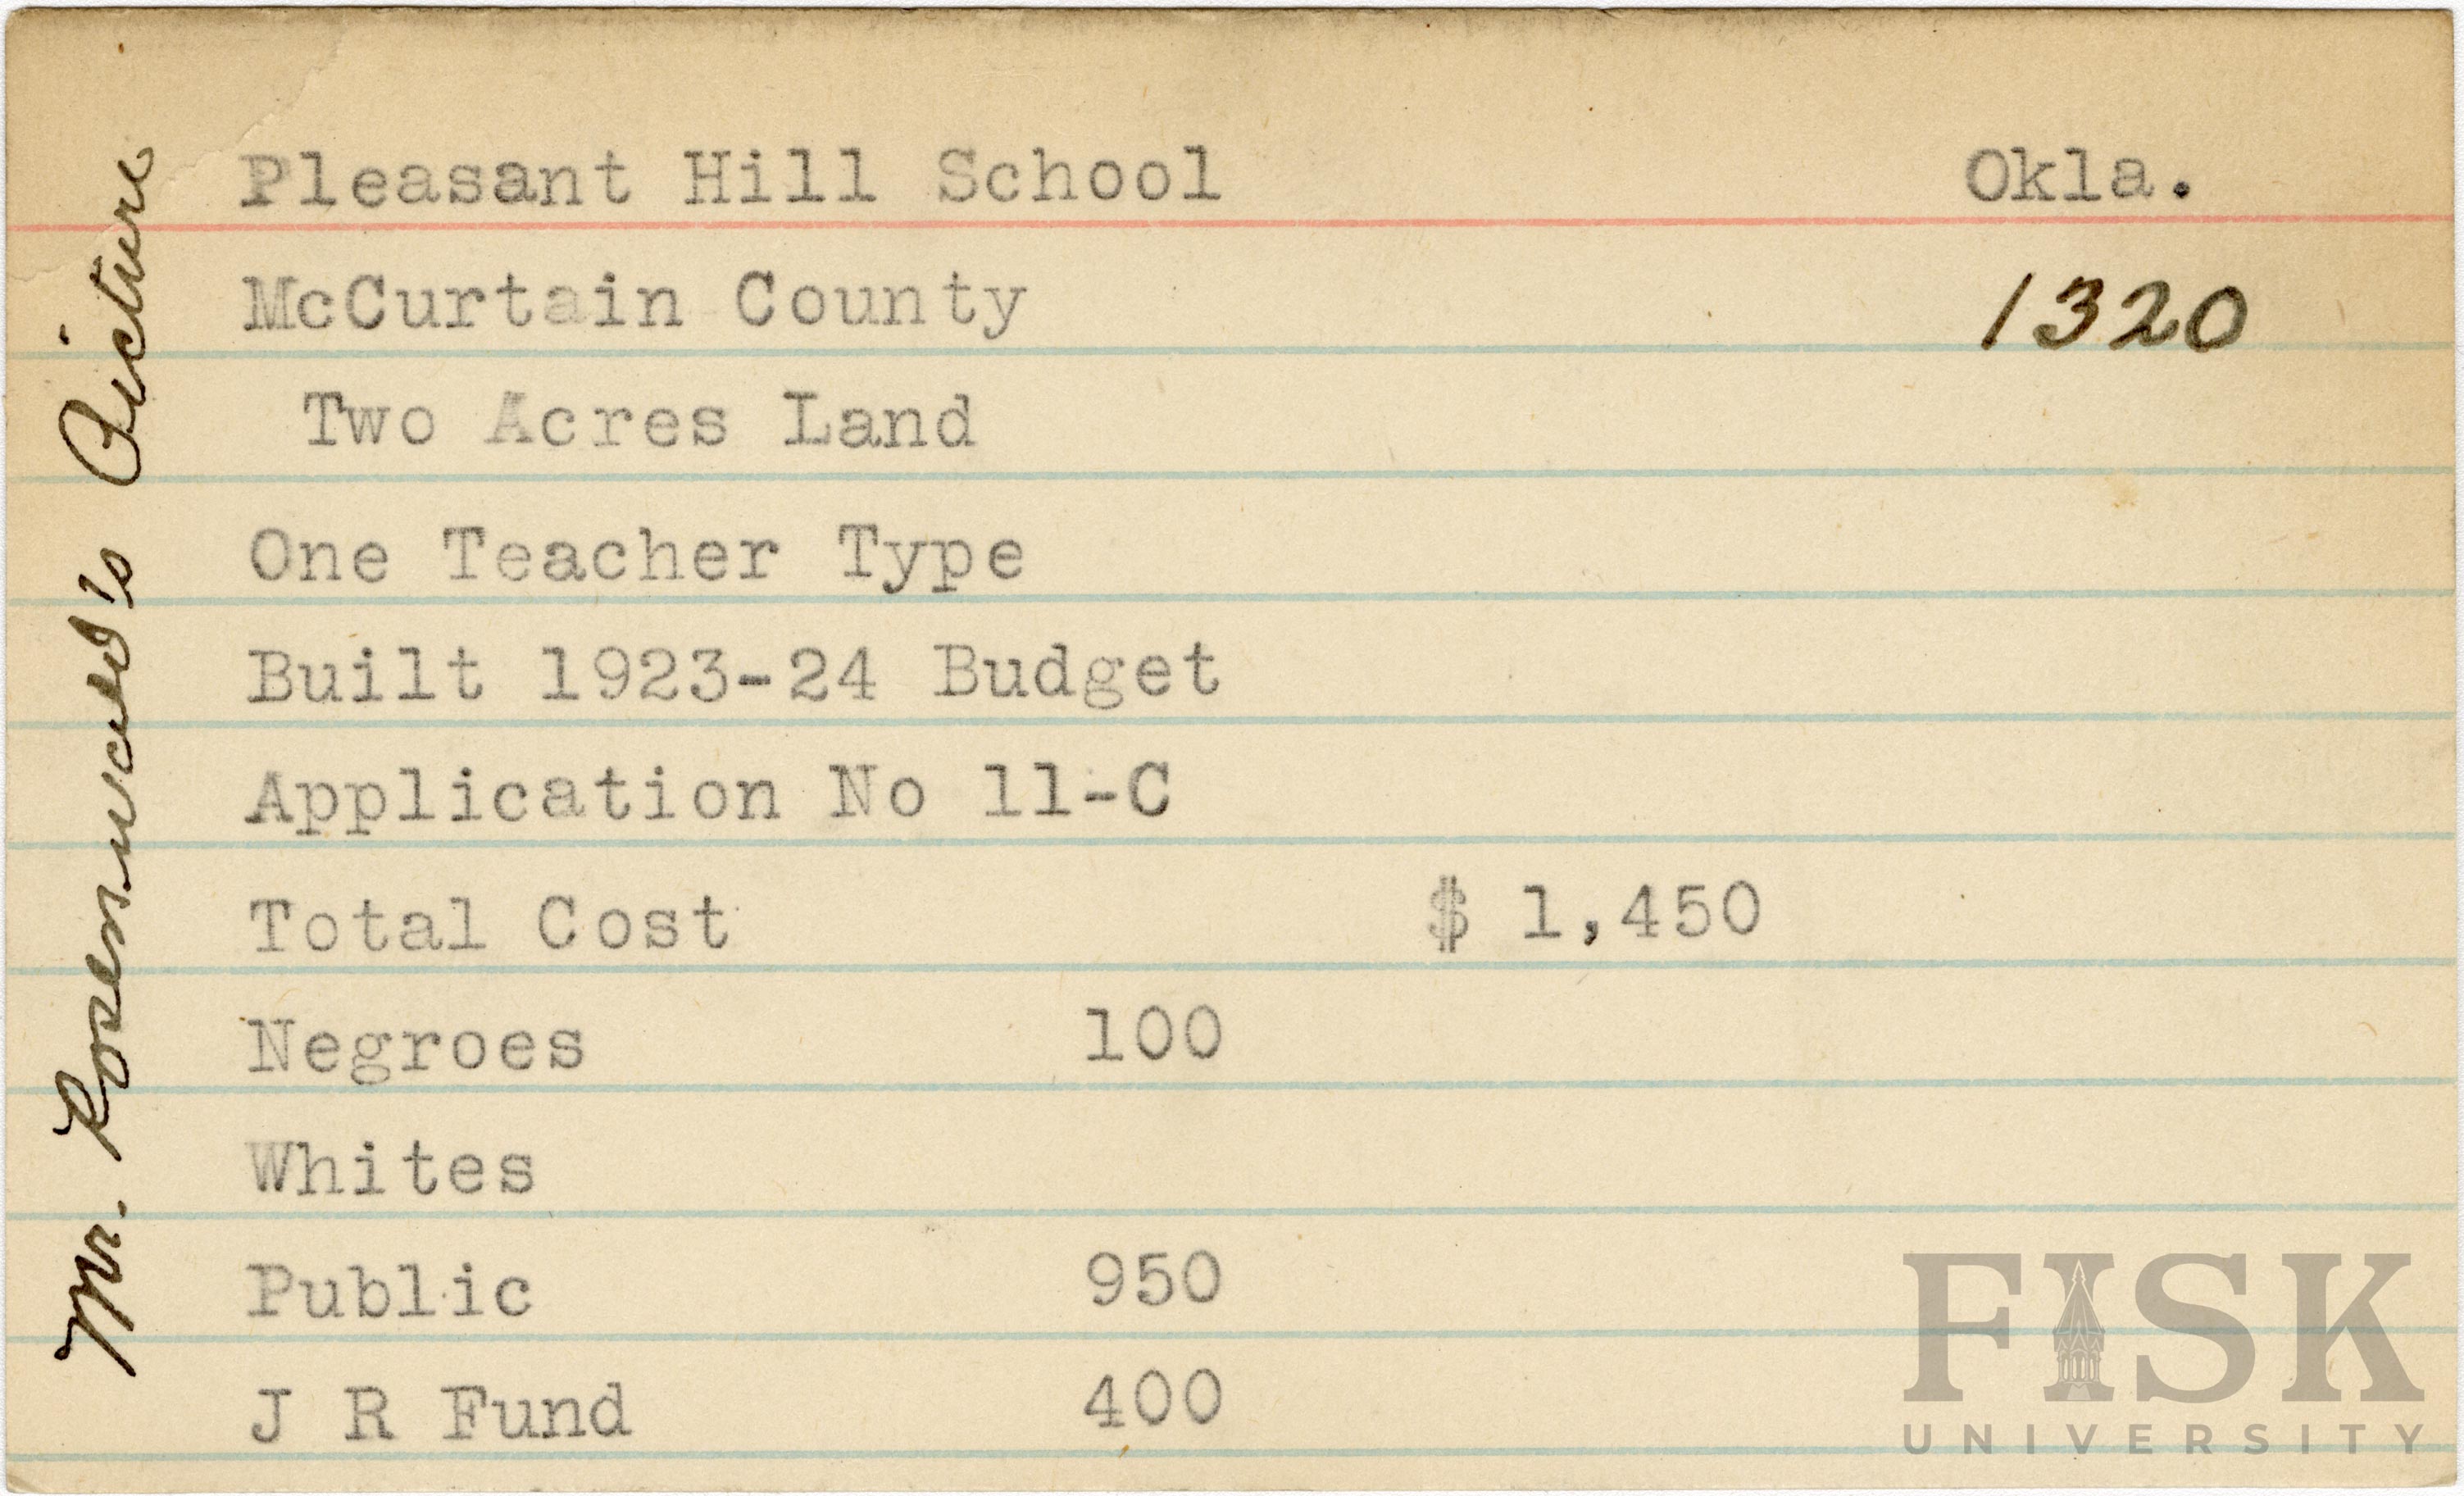 Pleasant Hill School Okla.
McCurtain County 1320
Two Acres Land
One Teacher Type
Built 1923-24 Budget
Application No 11-C
Total Cost $ 1,450
Negroes 100
Whites
Public 950
J R Fund 400
Mr. Rosenwald's Picture
FISK
UNIVERSITY